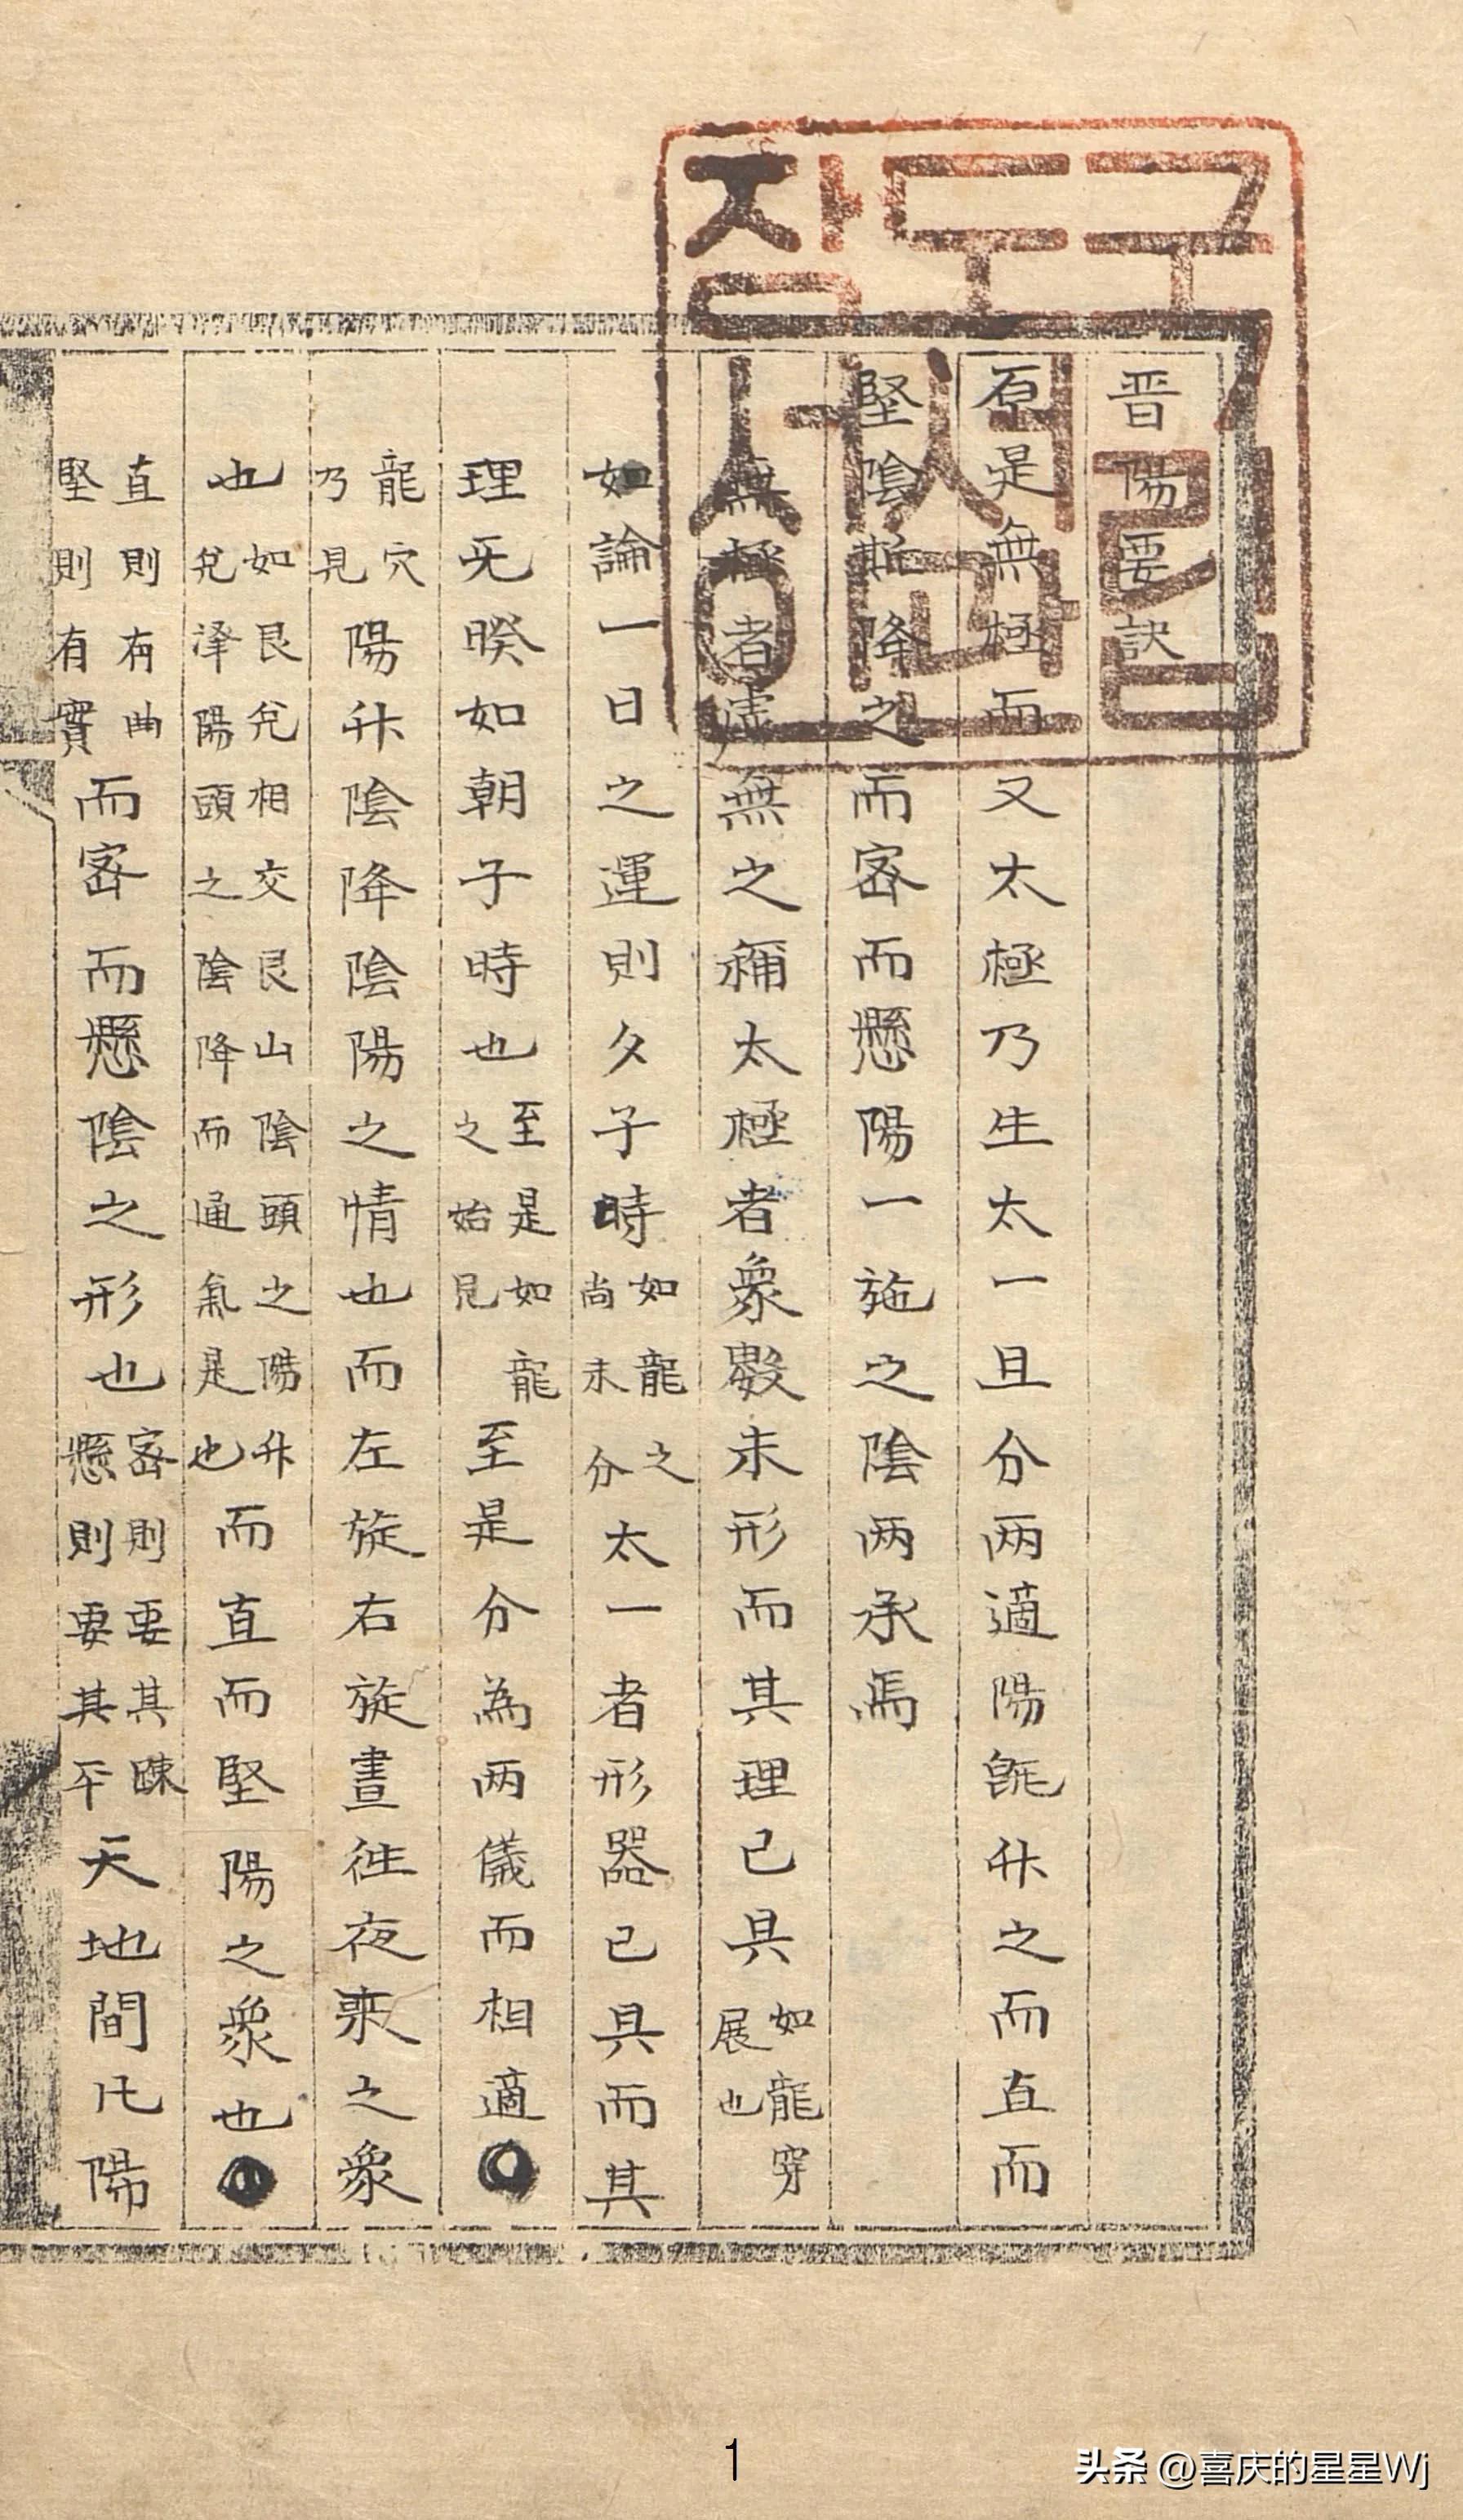 晋陽要訣
原是無極而又太極乃生太一且分两適陽旣升之而直而
堅陰斯降之而宻而懸陽一施之陰两承焉
無極者虛無之稱太極者象數未形而其理已具如龍穿展也
如論一日之運則夕子時如龍之尚未分太一者形器已具而其
理无暌如朝子時也至是如龍之始見至是分為两儀而相適
龍穴乃見陽升陰降陰陽之情也而左旋右旋晝徃夜来之象
也如艮兊相交艮山陰頭之陽升兊泽陽頭之陰降而通氣是也而直而堅陽之象也
直則有曲堅則有實而宻而懸陰之形也宻則要其踈懸則要其平天地間凡陽
1
头条 @喜庆的星星Wj